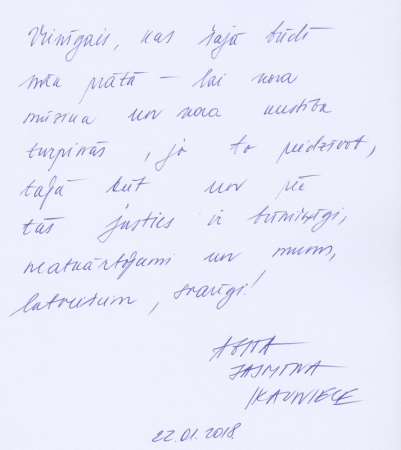 Vienīgais, kas šajā būdī
man prātā – lai sova
mūzika un sova kustība
turpinās, jo to piedzīvot,
tajā būt un pēc
tās justies ir brīnišķīgi,
neatkārtojami un mums,
latviešiem, svarīgi!
AGITA
JASMĪNA
IKAUNIECE
22.01.2018